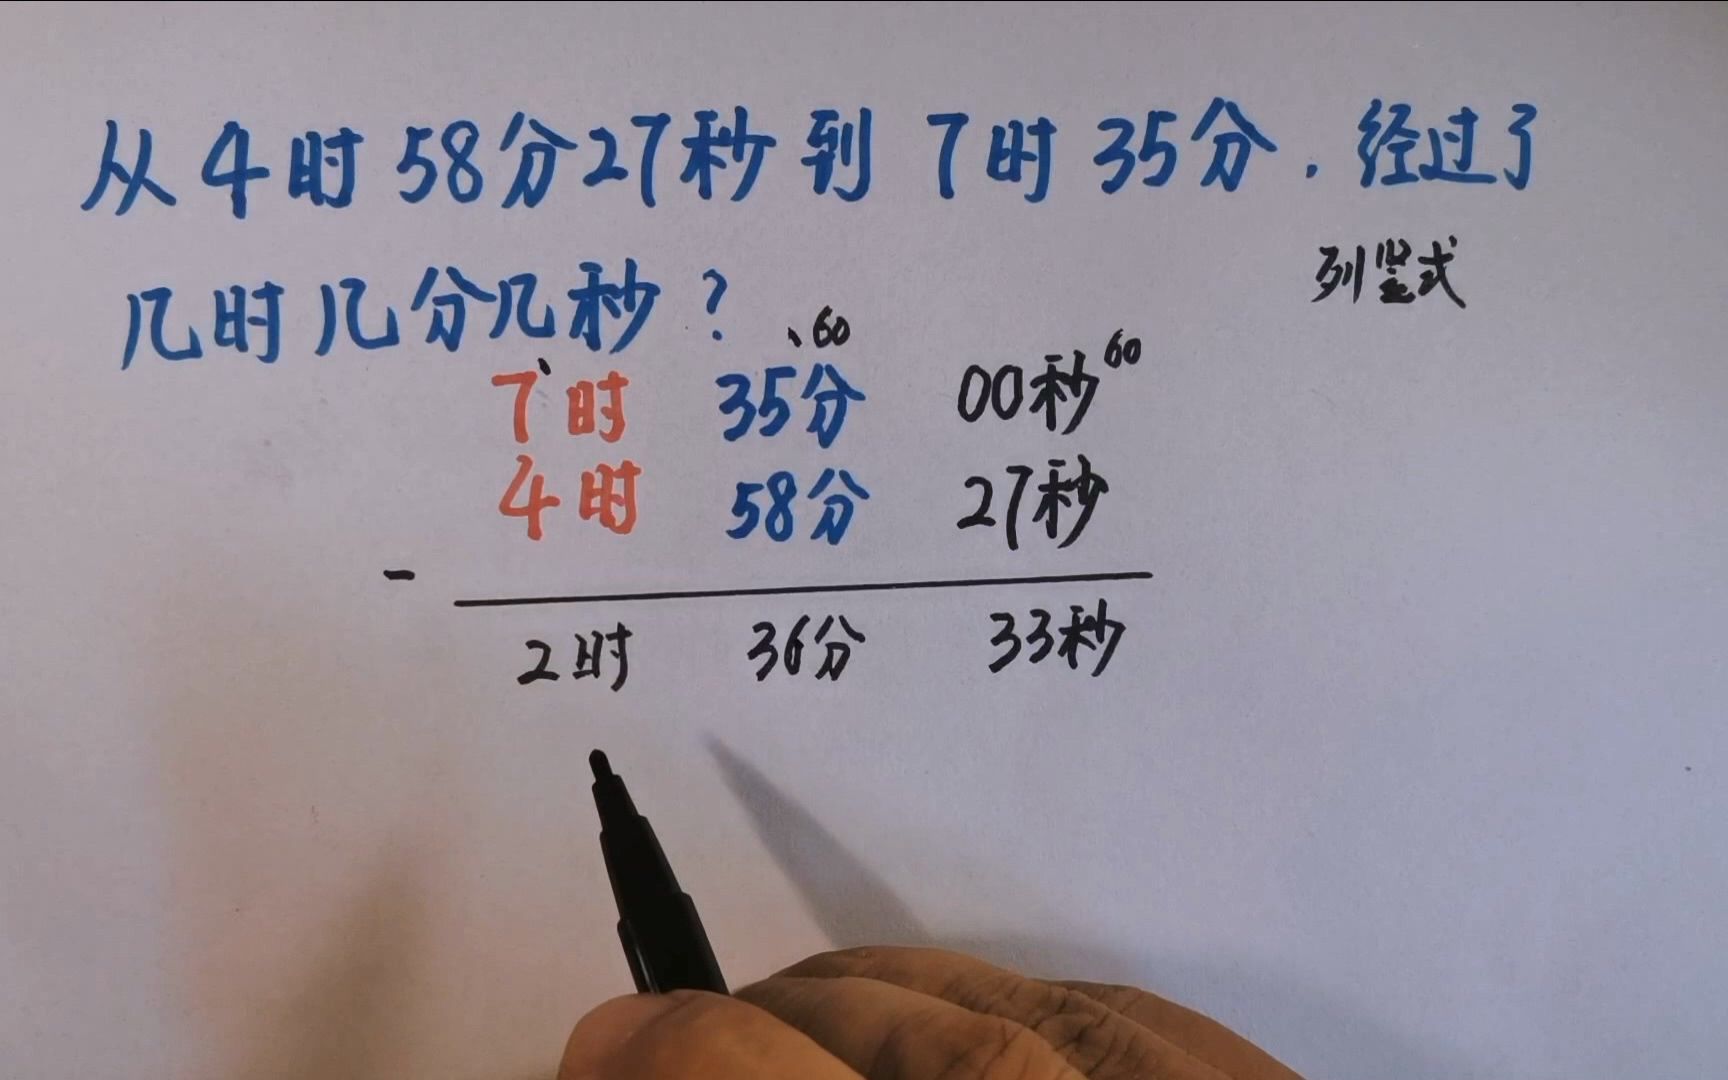 从4时58分27秒到7时35分.经过了
列竖式
几时几分几秒?
、60
60
7时 35分 00秒
4时 58分 27秒
-
2时 36分 33秒